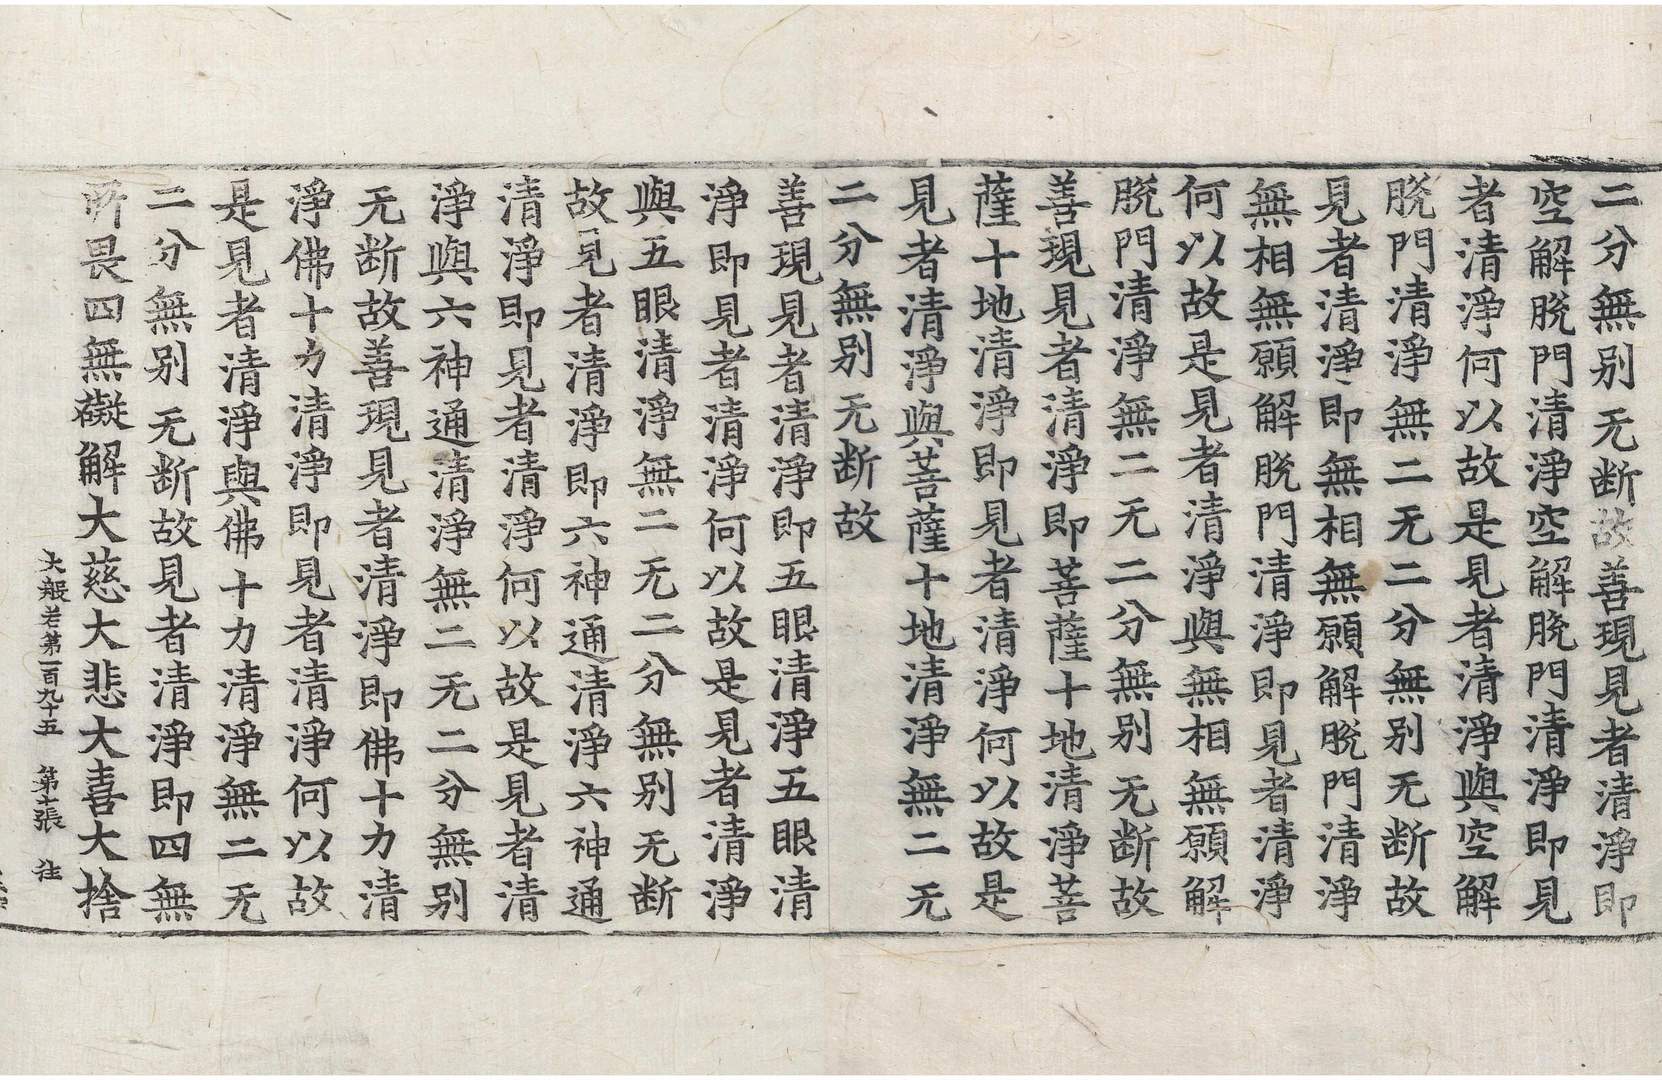 二分無别无断故善現見者清淨即
空解脫門清淨空解脫門清淨即見
者清淨何以故是見者清淨與空解
脫門清淨無二无二分無别无断故
見者清淨即無相無願解脫門清淨
無相無願解脫門清淨即見者清淨
何以故是見者清淨與無相無願解
脫門清淨無二无二分無别无断故
善現見者清淨即菩薩十地清淨菩
薩十地清淨即見者清淨何以故是
見者清淨與菩薩十地清淨無二无
二分無别无断故
善現見者清淨即五眼清淨五眼清
淨即見者清淨何以故是見者清淨
與五眼清淨無二无二分無别无断
故見者清淨即六神通清淨六神通
清淨即見者清淨何以故是見者清
淨與六神通清淨無二无二分無别
无断故善現見者清淨即佛十力清
淨佛十力清淨即見者清淨何以故
是見者清淨與佛十力清淨無二无
二分無别无断故見者清淨即四無
所畏四無礙解大慈大悲大喜大捨
大般若第一百九十五 第十張 往